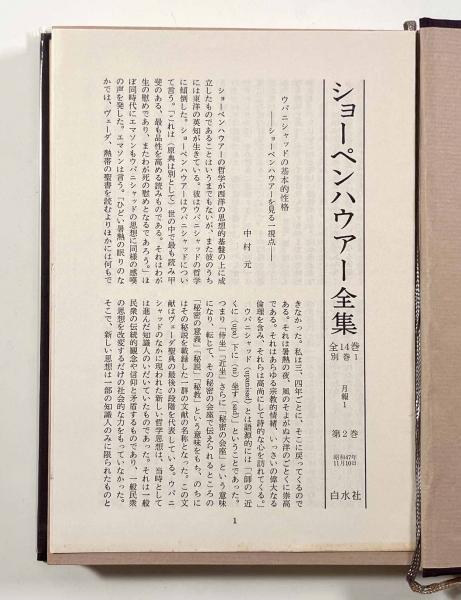 ショーペンハウアー全集
全14巻
別巻1
月報1
第2巻
昭和47年
11月10日
白水社
ウパニシャッドの基本的性格
――ショーペンハウアーを見る一視点――
中村 元
ショーペンハウアーの哲学が西洋の思想的基盤の上に成
立したものであることはいうまでもないが、また彼のうち
には東洋の英知が生きている。彼はウパニシャッドの哲学
に傾倒した。ショーペンハウアーはウパニシャッドについ
て言う。「これは(原典は別として)世の中で最も読み甲
斐のある、最も品性を高める読みものである。それはわが
生の慰めであり、またわが死の慰めとなるであろう。」ほ
ぼ同時代にエマソンもウパニシャッドの思想に同様の感嘆
の声を発した。エマソンは言う。「ひどい暑熱の眠りのな
かでは、ヴェーダ、熱帯の聖書を読むよりほかには何もで
きなかった。私は三、四年ごとに、そこに戻ってくるので
ある。それは暑熱の夜、風のそよがぬ大洋のごとくに崇高
である。それはあらゆる宗教的情緒、いっさいの偉大なる
倫理を含み、それらは高尚にして詩的な心を訪れてくる。」
ウパニシャッド(upaniṣad)とは語源的には「(師の)近
くに(upa)下に(ni)坐す(sad)」ということであった。
つまり「侍坐」「近坐」さらに「秘密の会座」という意味
になり、転じて、その秘密の会座で伝えられるところの
「秘密の意義」「秘説」「秘教」という意味をもち、のちに
はその秘説を載録した一群の文献の名称となった。この文
献はヴェーダ聖典の最後の段階を代表している。ウパニ
シャッドのなかに現われた新しい哲学思想は、当時として
は進んだ知識人のいだいていたものであった。それは一般
民衆の伝統的観念や信仰と矛盾するものであり、一般民衆
の思想を改変するだけの社会的な力をもっていなかった。
そこで、新しい思想は一部の知識人のみに限られたものと
1